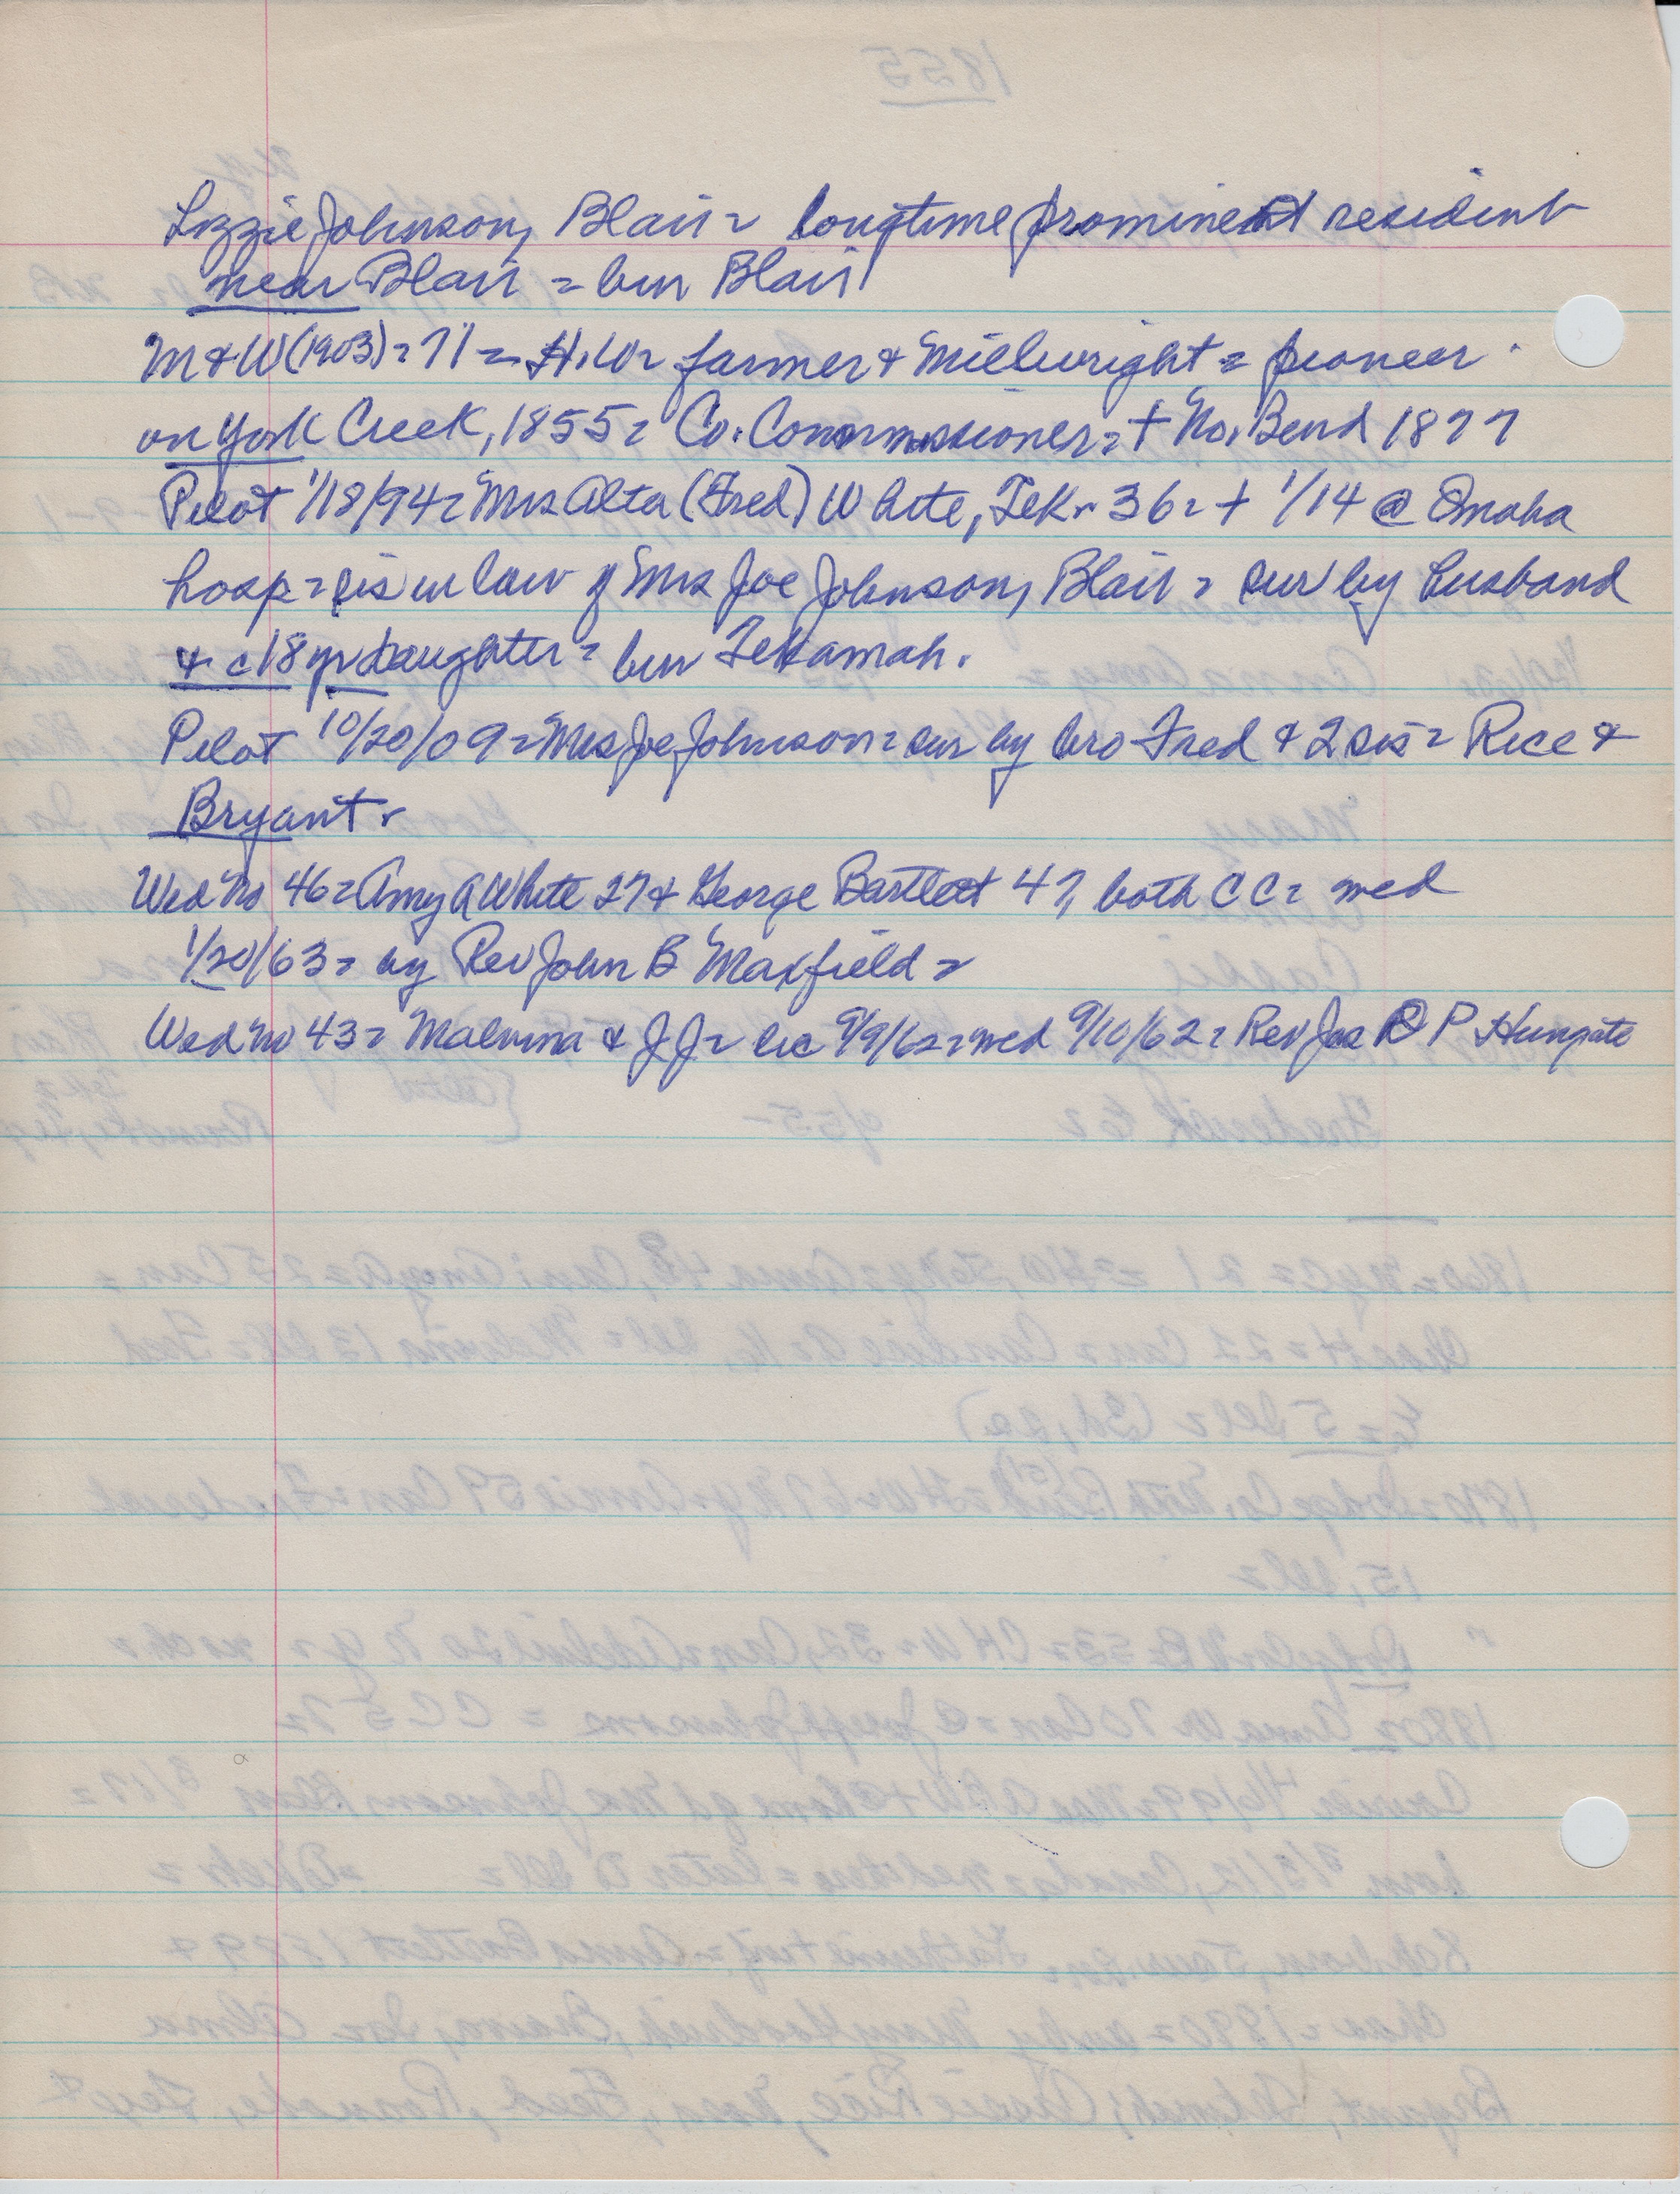 Lizzie Johnson, Blair = longtime prominent resident
near Blair = bur Blair
M & W (1903) = 71 = H.W = farmer & Millwright = pioneer
on York Creek, 1855 = Co. Commissioner = + No. Bend 1877
Pilot 1/18/94 = Mrs Alta (Fred) White, Tek = 36 = + 1/14 @ Omaha
hosp = sis in law of Mrs Joe Johnson, Blair = sur by husband
& c 18 yr daughter = bur Tekamah.
Pilot 10/20/09 = Mrs Joe Johnson = sur by bro Fred & 2 sis = Rice &
Bryant =
Wed No 46 = Amy A White 27 & George Bartlett 47, both CC = wed
1/20/63 = by Rev John B Maxfield =
Wed No 43 = Malvina & J J = lic 9/9/62 = wed 9/10/62 = Rev Jas R P Hungate